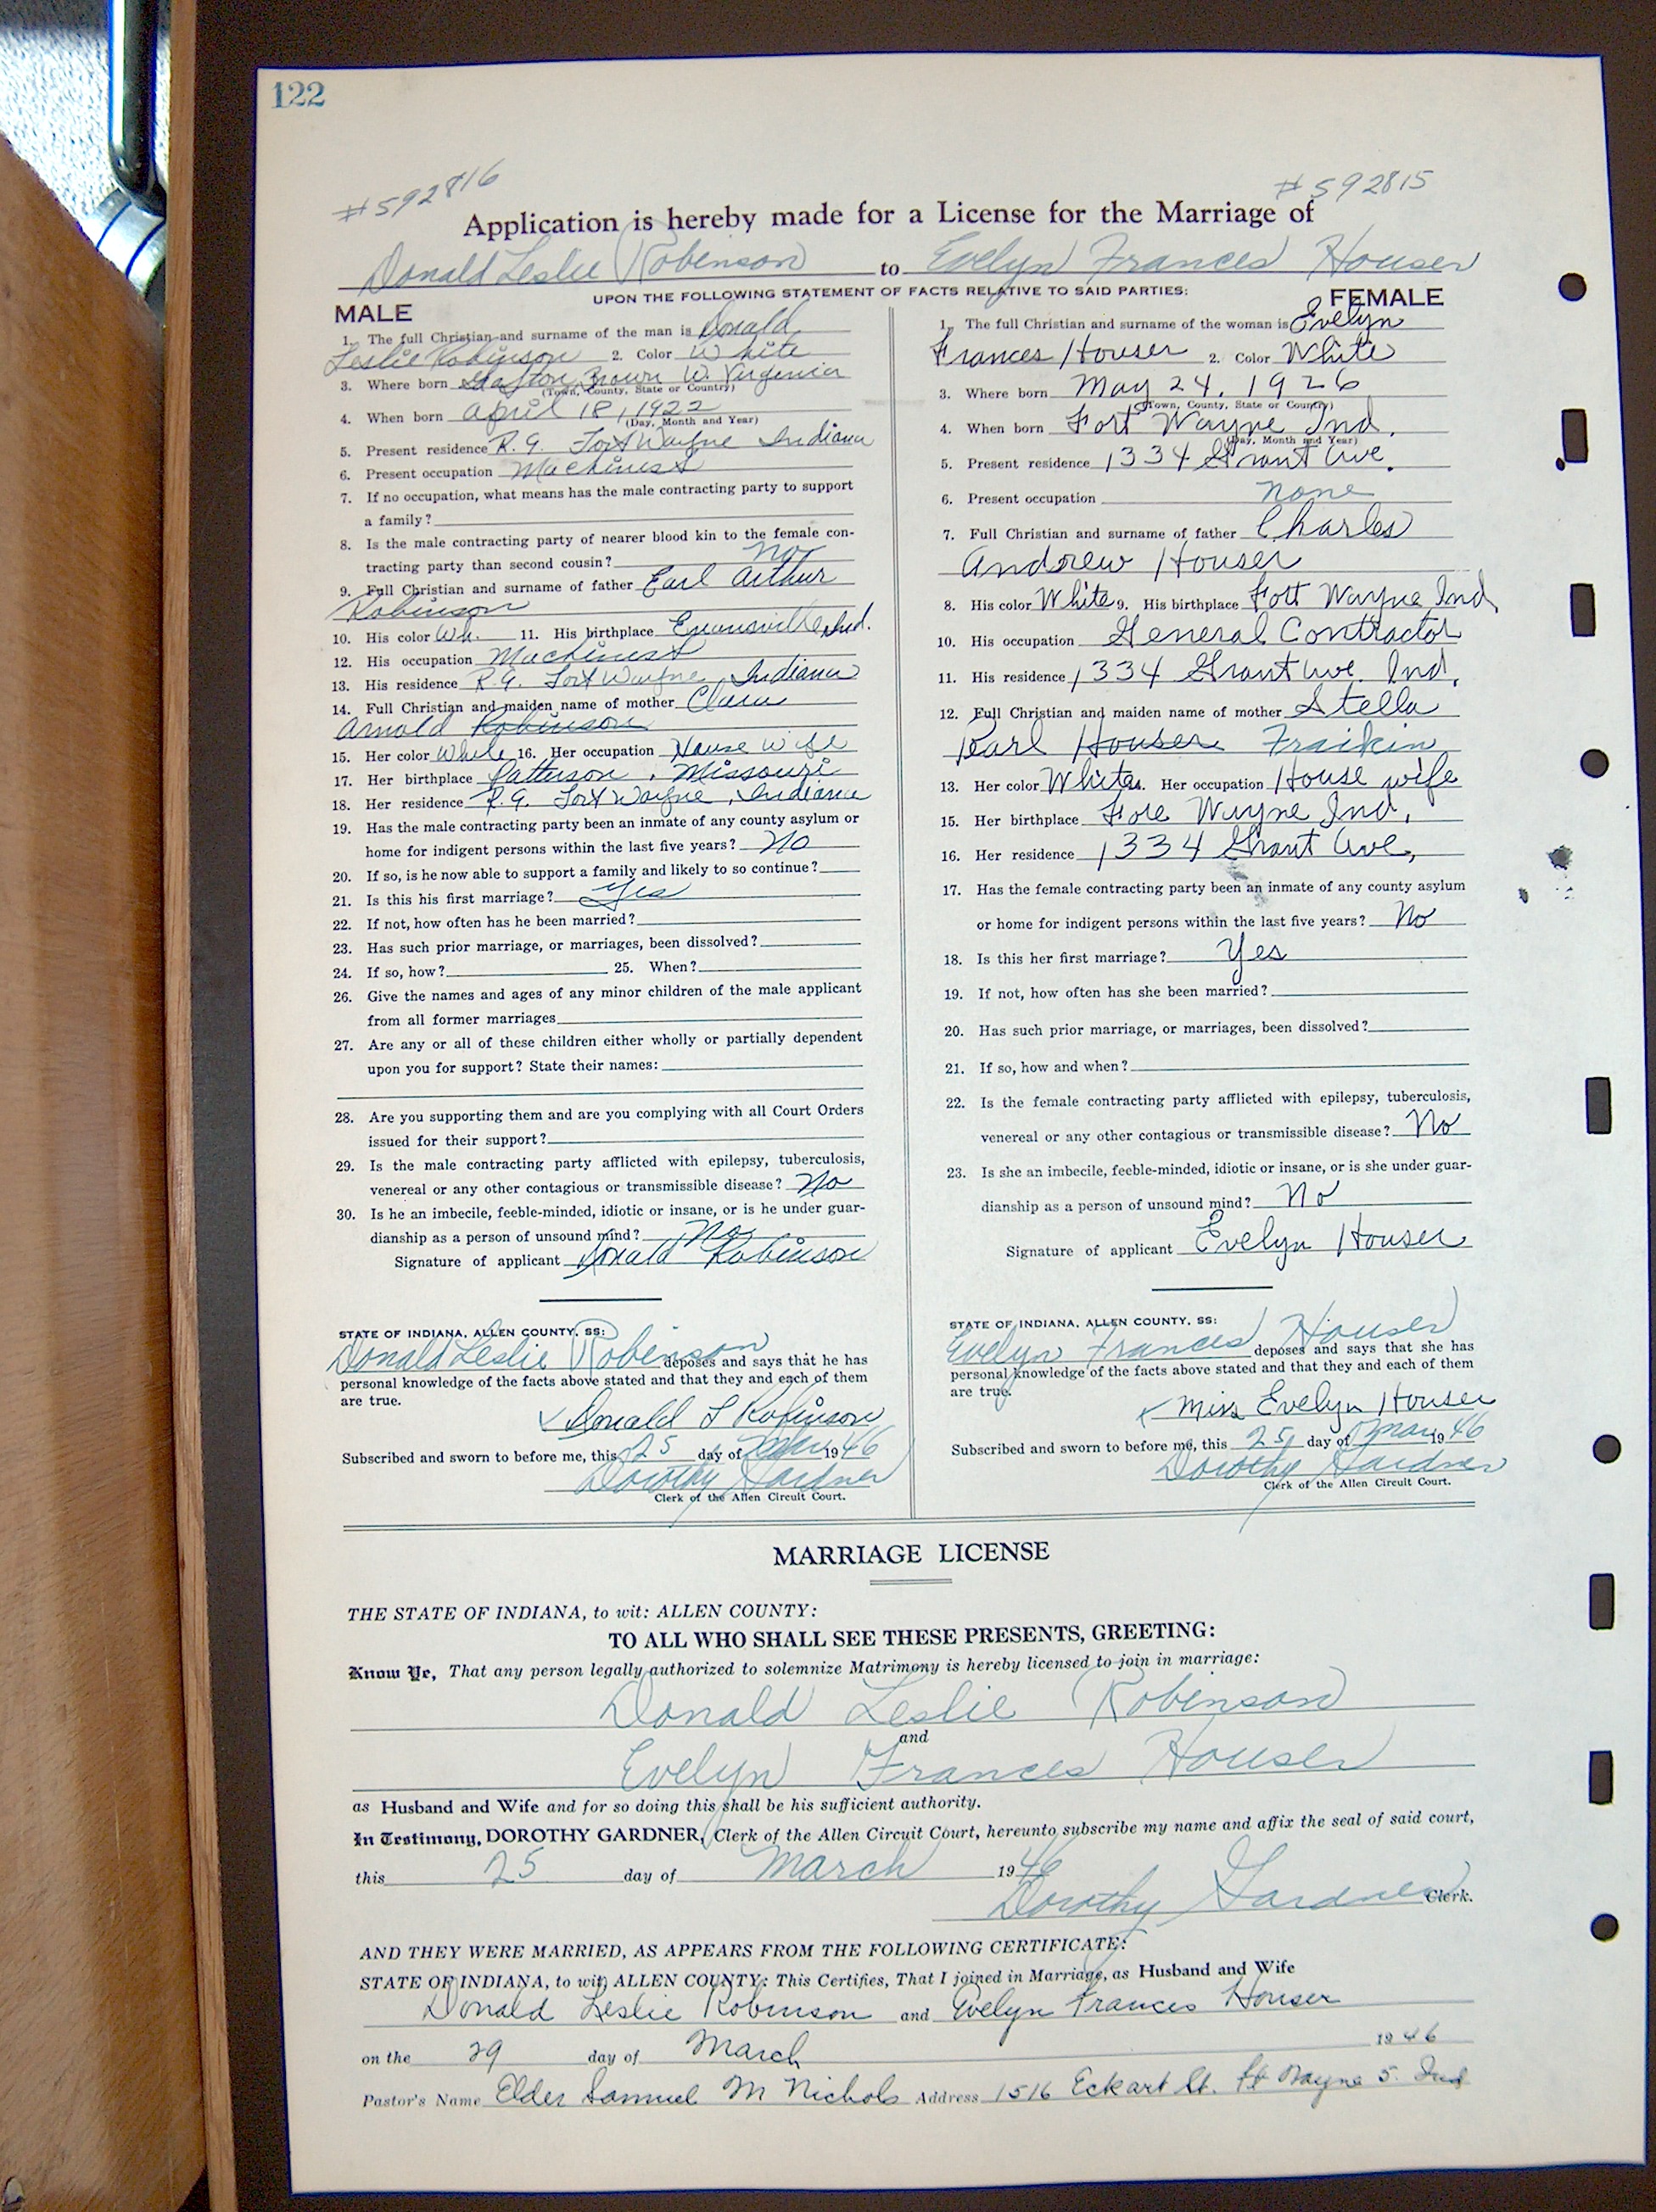 122
#592816
#592815
Application is hereby made for a License for the Marriage of
Donald Leslie Robinson to Evelyn Frances Houser
UPON THE FOLLOWING STATEMENT OF FACTS RELATIVE TO SAID PARTIES:
MALE
1. The full Christian and surname of the man is Donald
Leslie Robinson 2. Color White
3. Where born Brown W. Virginia
(Town, County, State or Country)
4. When born April 18, 1922
(Day, Month and Year)
5. Present residence R.9. Fort Wayne Indiana
6. Present occupation Machinist
7. If no occupation, what means has the male contracting party to support
a family?
8. Is the male contracting party of nearer blood kin to the female con-
tracting party than second cousin? no
9. Full Christian and surname of father Earl Arthur
Robinson
10. His color Wh. 11. His birthplace Evansville Ind.
12. His occupation Machinist
13. His residence R.9. Fort Wayne Indiana
14. Full Christian and maiden name of mother Clara
Arnold Robinson
15. Her color White 16. Her occupation House Wife
17. Her birthplace Patterson, Missouri
18. Her residence R.9. Fort Wayne, Indiana
19. Has the male contracting party been an inmate of any county asylum or
home for indigent persons within the last five years? No
20. If so, is he now able to support a family and likely to so continue?
21. Is this his first marriage? Yes
22. If not, how often has he been married?
23. Has such prior marriage, or marriages, been dissolved?
24. If so, how? 25. When?
26. Give the names and ages of any minor children of the male applicant
from all former marriages
27. Are any or all of these children either wholly or partially dependent
upon you for support? State their names:
28. Are you supporting them and are you complying with all Court Orders
issued for their support?
29. Is the male contracting party afflicted with epilepsy, tuberculosis,
venereal or any other contagious or transmissible disease? No
30. Is he an imbecile, feeble-minded, idiotic or insane, or is he under guar-
dianship as a person of unsound mind? No
Signature of applicant Donald Robinson
STATE OF INDIANA, ALLEN COUNTY, SS:
Donald Leslie Robinson deposes and says that he has
personal knowledge of the facts above stated and that they and each of them
are true.
Donald L Robinson
Subscribed and sworn to before me, this 25 day of Mar 1946
Dorothy Gardner
Clerk of the Allen Circuit Court.
FEMALE
1. The full Christian and surname of the woman is Evelyn
Frances Houser 2. Color White
3. Where born May 24, 1926
(Town, County, State or Country)
4. When born Fort Wayne Ind.
(Day, Month and Year)
5. Present residence 1334 Grant Ave.
6. Present occupation none
7. Full Christian and surname of father Charles
Andrew Houser
8. His color White 9. His birthplace Fort Wayne Ind.
10. His occupation General Contractor
11. His residence 1334 Grant Ave. Ind.
12. Full Christian and maiden name of mother Stella
Pearl Houser Fraikin
13. Her color White. Her occupation House wife
15. Her birthplace Fore Wayne Ind.
16. Her residence 1334 Grant Ave.
17. Has the female contracting party been an inmate of any county asylum
or home for indigent persons within the last five years? No
18. Is this her first marriage? Yes
19. If not, how often has she been married?
20. Has such prior marriage, or marriages, been dissolved?
21. If so, how and when?
22. Is the female contracting party afflicted with epilepsy, tuberculosis,
venereal or any other contagious or transmissible disease? No
23. Is she an imbecile, feeble-minded, idiotic or insane, or is she under guar-
dianship as a person of unsound mind? No
Signature of applicant Evelyn Houser
STATE OF INDIANA, ALLEN COUNTY, SS:
Evelyn Frances Houser deposes and says that she has
personal knowledge of the facts above stated and that they and each of them
are true.
x Miss Evelyn Houser
Subscribed and sworn to before me, this 25 day of Mar 1946
Dorothy Gardner
Clerk of the Allen Circuit Court.
MARRIAGE LICENSE
THE STATE OF INDIANA, to wit: ALLEN COUNTY:
TO ALL WHO SHALL SEE THESE PRESENTS, GREETING:
Know Ye, That any person legally authorized to solemnize Matrimony is hereby licensed to join in marriage:
Donald Leslie Robinson
and
Evelyn Frances Houser
as Husband and Wife and for so doing this shall be his sufficient authority.
In Testimony, DOROTHY GARDNER, Clerk of the Allen Circuit Court, hereunto subscribe my name and affix the seal of said court,
this 25 day of March 1946
Dorothy Gardner Clerk.
AND THEY WERE MARRIED, AS APPEARS FROM THE FOLLOWING CERTIFICATE:
STATE OF INDIANA, to wit: ALLEN COUNTY: This Certifies, That I joined in Marriage, as Husband and Wife
Donald Leslie Robinson and Evelyn Frances Houser
on the 29 day of March 1946
Pastor's Name Elder Samuel M Nichols Address 1516 Eckart St. Ft Wayne 5. Ind